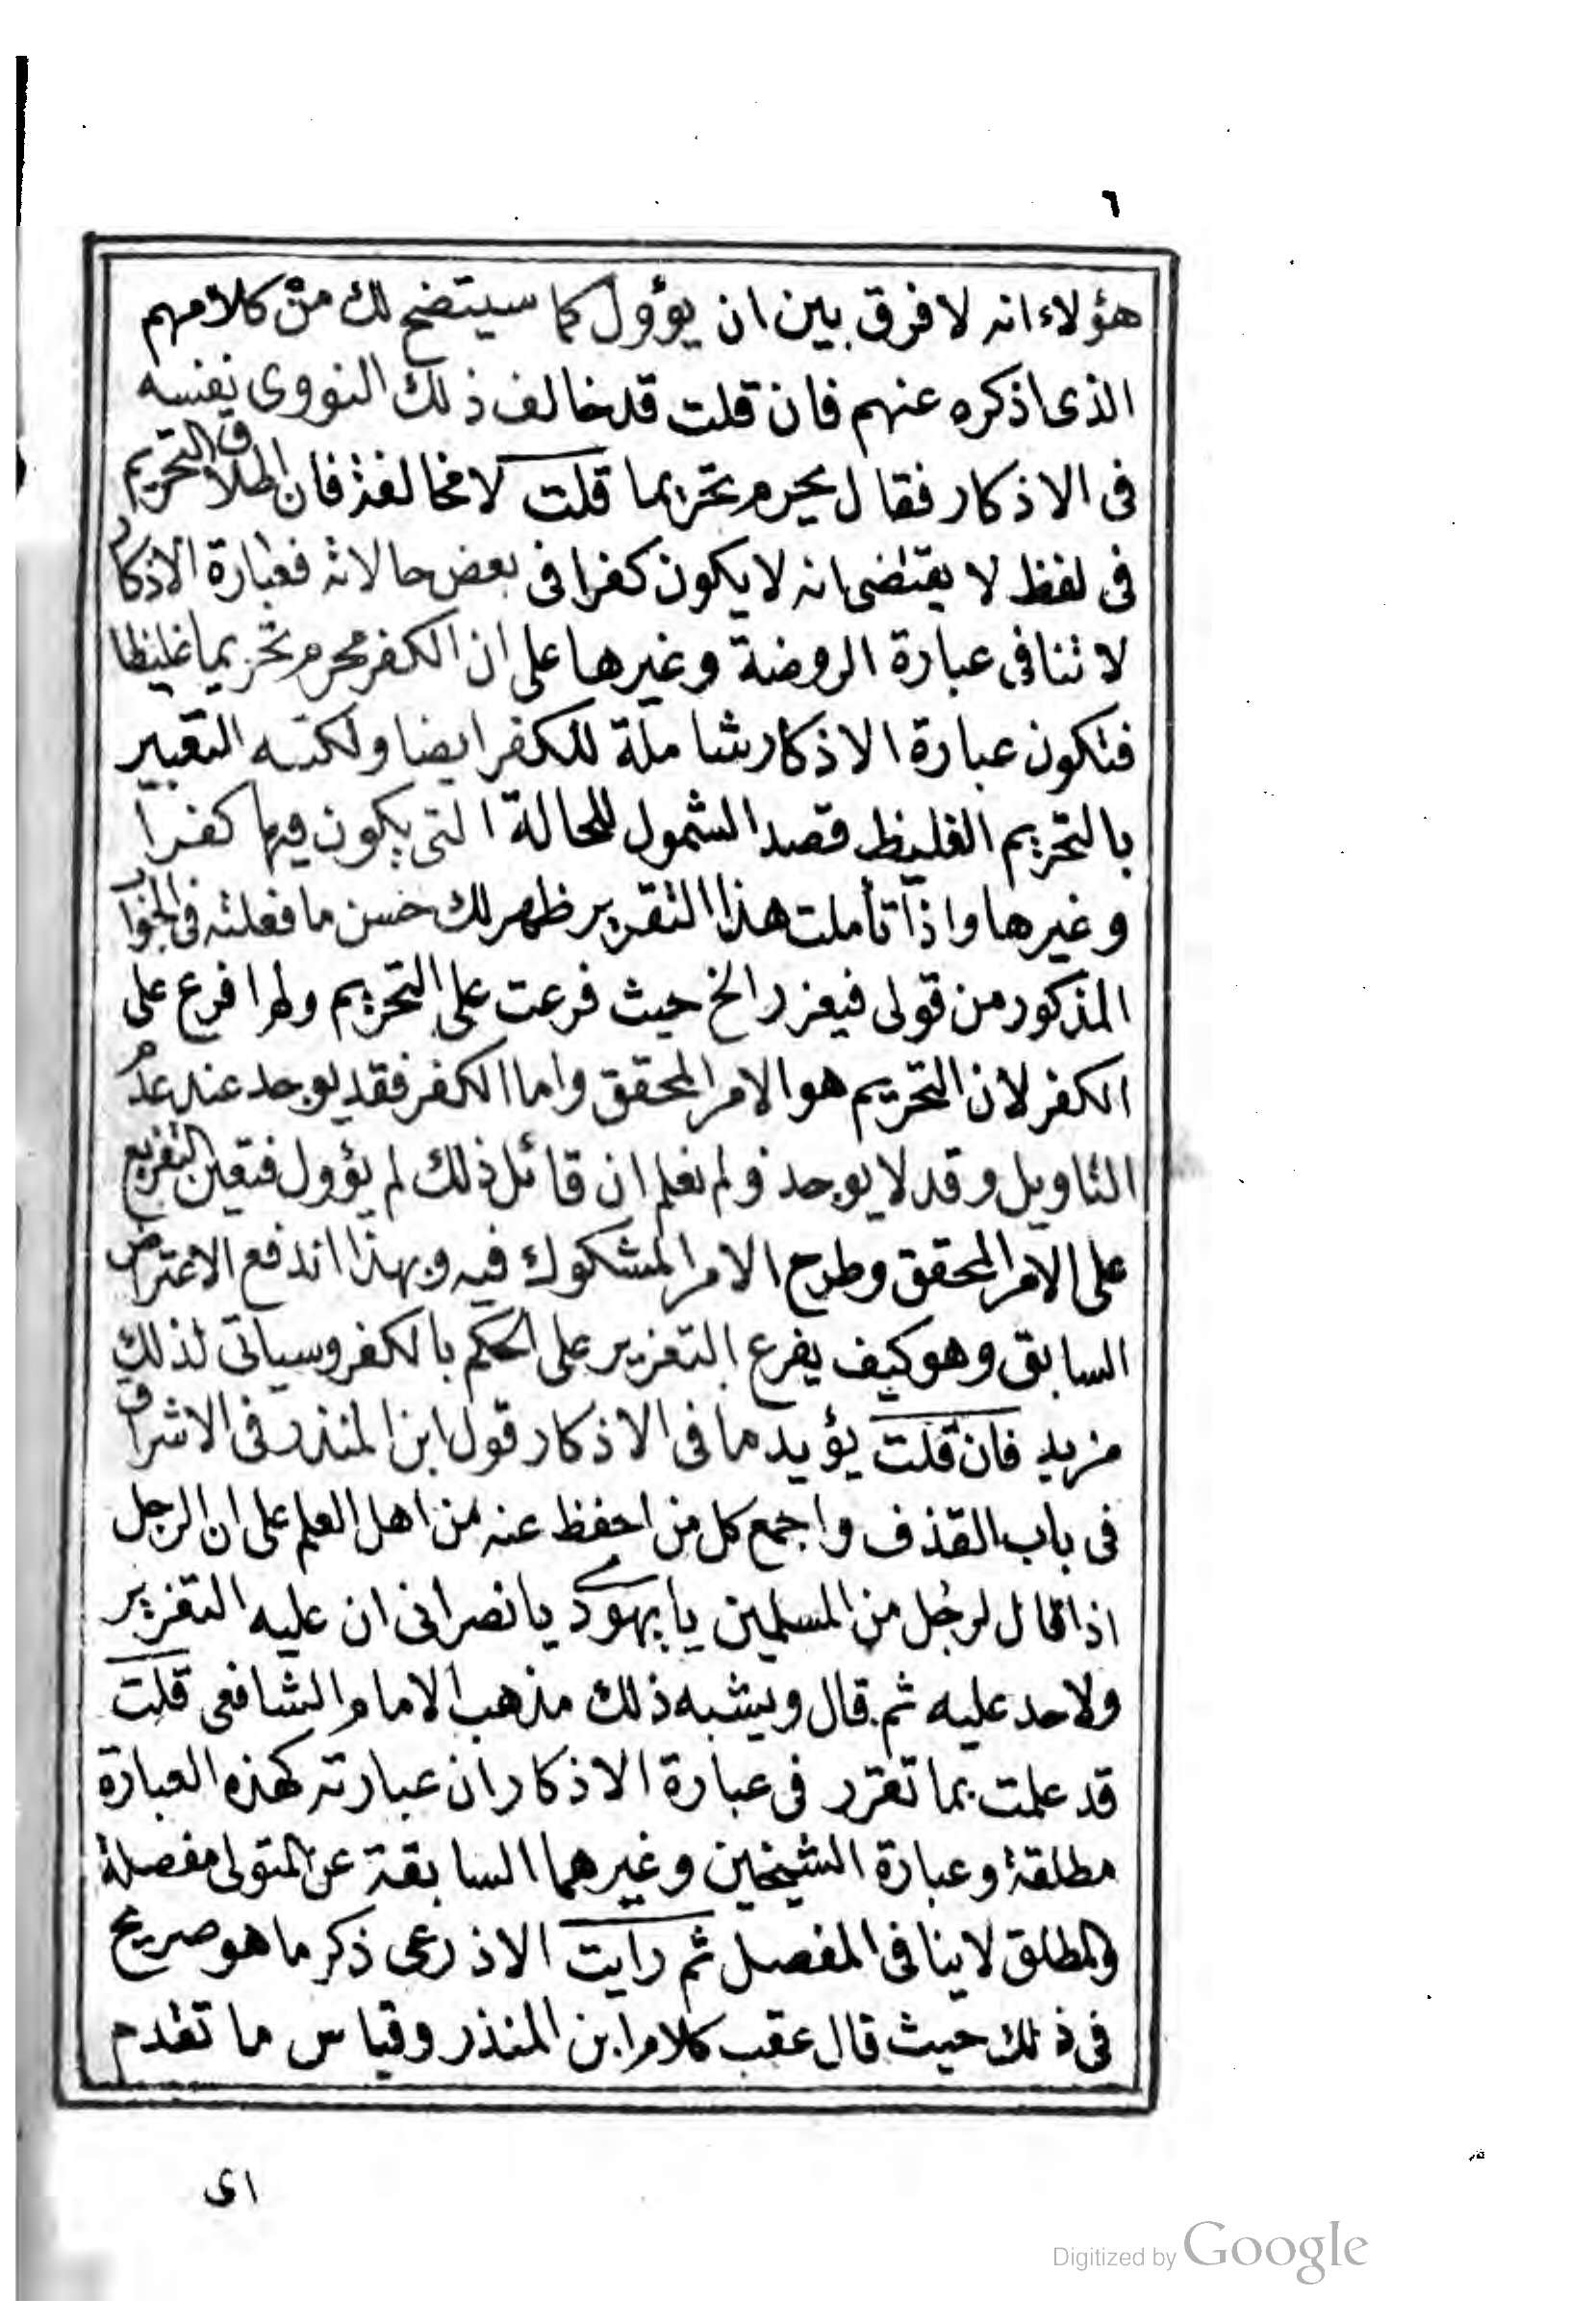 ٦
هؤلاء انه لا فرق بين ان يؤول كما سيتضح لك من كلامهم
الذى اذكره عنهم فان قلت قد خالف ذلك النووى نفسه
فى الاذكار فقال يحرم تحريما قلت لا مخالفة فان اطلاق التحريم
فى لفظ لا يقتضى انه لا يكون كفرا فى بعض حالاته فعبارة الاذكار
لا تنافى عبارة الروضة وغيرها على ان الكفر محرم تحريما غليظا
فتكون عبارة الاذكار شاملة للكفر ايضا ونكتة التعبير
بالتحريم الغليظ قصد الشمول للحالة التى يكون فيها كفرا
وغيرها واذا تأملت هذا التقرير ظهر لك حسن ما فعلته فى الجواب
المذكور من قولى فيعزر الخ حيث فرعت على التحريم ولم افرع على
الكفر لأن التحريم هو الامر المحقق واما الكفر فقد يوجد عند عدم
التاويل وقد لا يوجد ولم نعلم ان قائل ذلك لم يؤول فتعين التفريع
على الامر المحقق وطرح الامر المشكوك فيه وبهذا اندفع الاعتراض
السابق وهو كيف يفرع التعزير على الحكم بالكفر وسياتى لذلك
مزيد فان قلت يؤيد ما فى الاذكار قول ابن المنذر فى الاشراف
فى باب القذف واجمع كل من احفظ عنه من اهل العلم على ان الرجل
اذا قال لرجل من المسلمين يا يهودى يا نصرانى ان عليه التعزير
ولا حد عليه ثم قال ويشبه ذلك مذهب الامام الشافعى قلت
قد علمت بما تقرر فى عبارة الاذكار ان عبارته كهذه العبارة
مطلقة وعبارة الشيخين وغيرهما السابقة عن المتولى مفصلة
والمطلق لا ينافى المفصل ثم رايت الاذرعى ذكر ما هو صريح
فى ذلك حيث قال عقب كلام ابن المنذر وقياس ما تقدم
اى
Digitized by Google